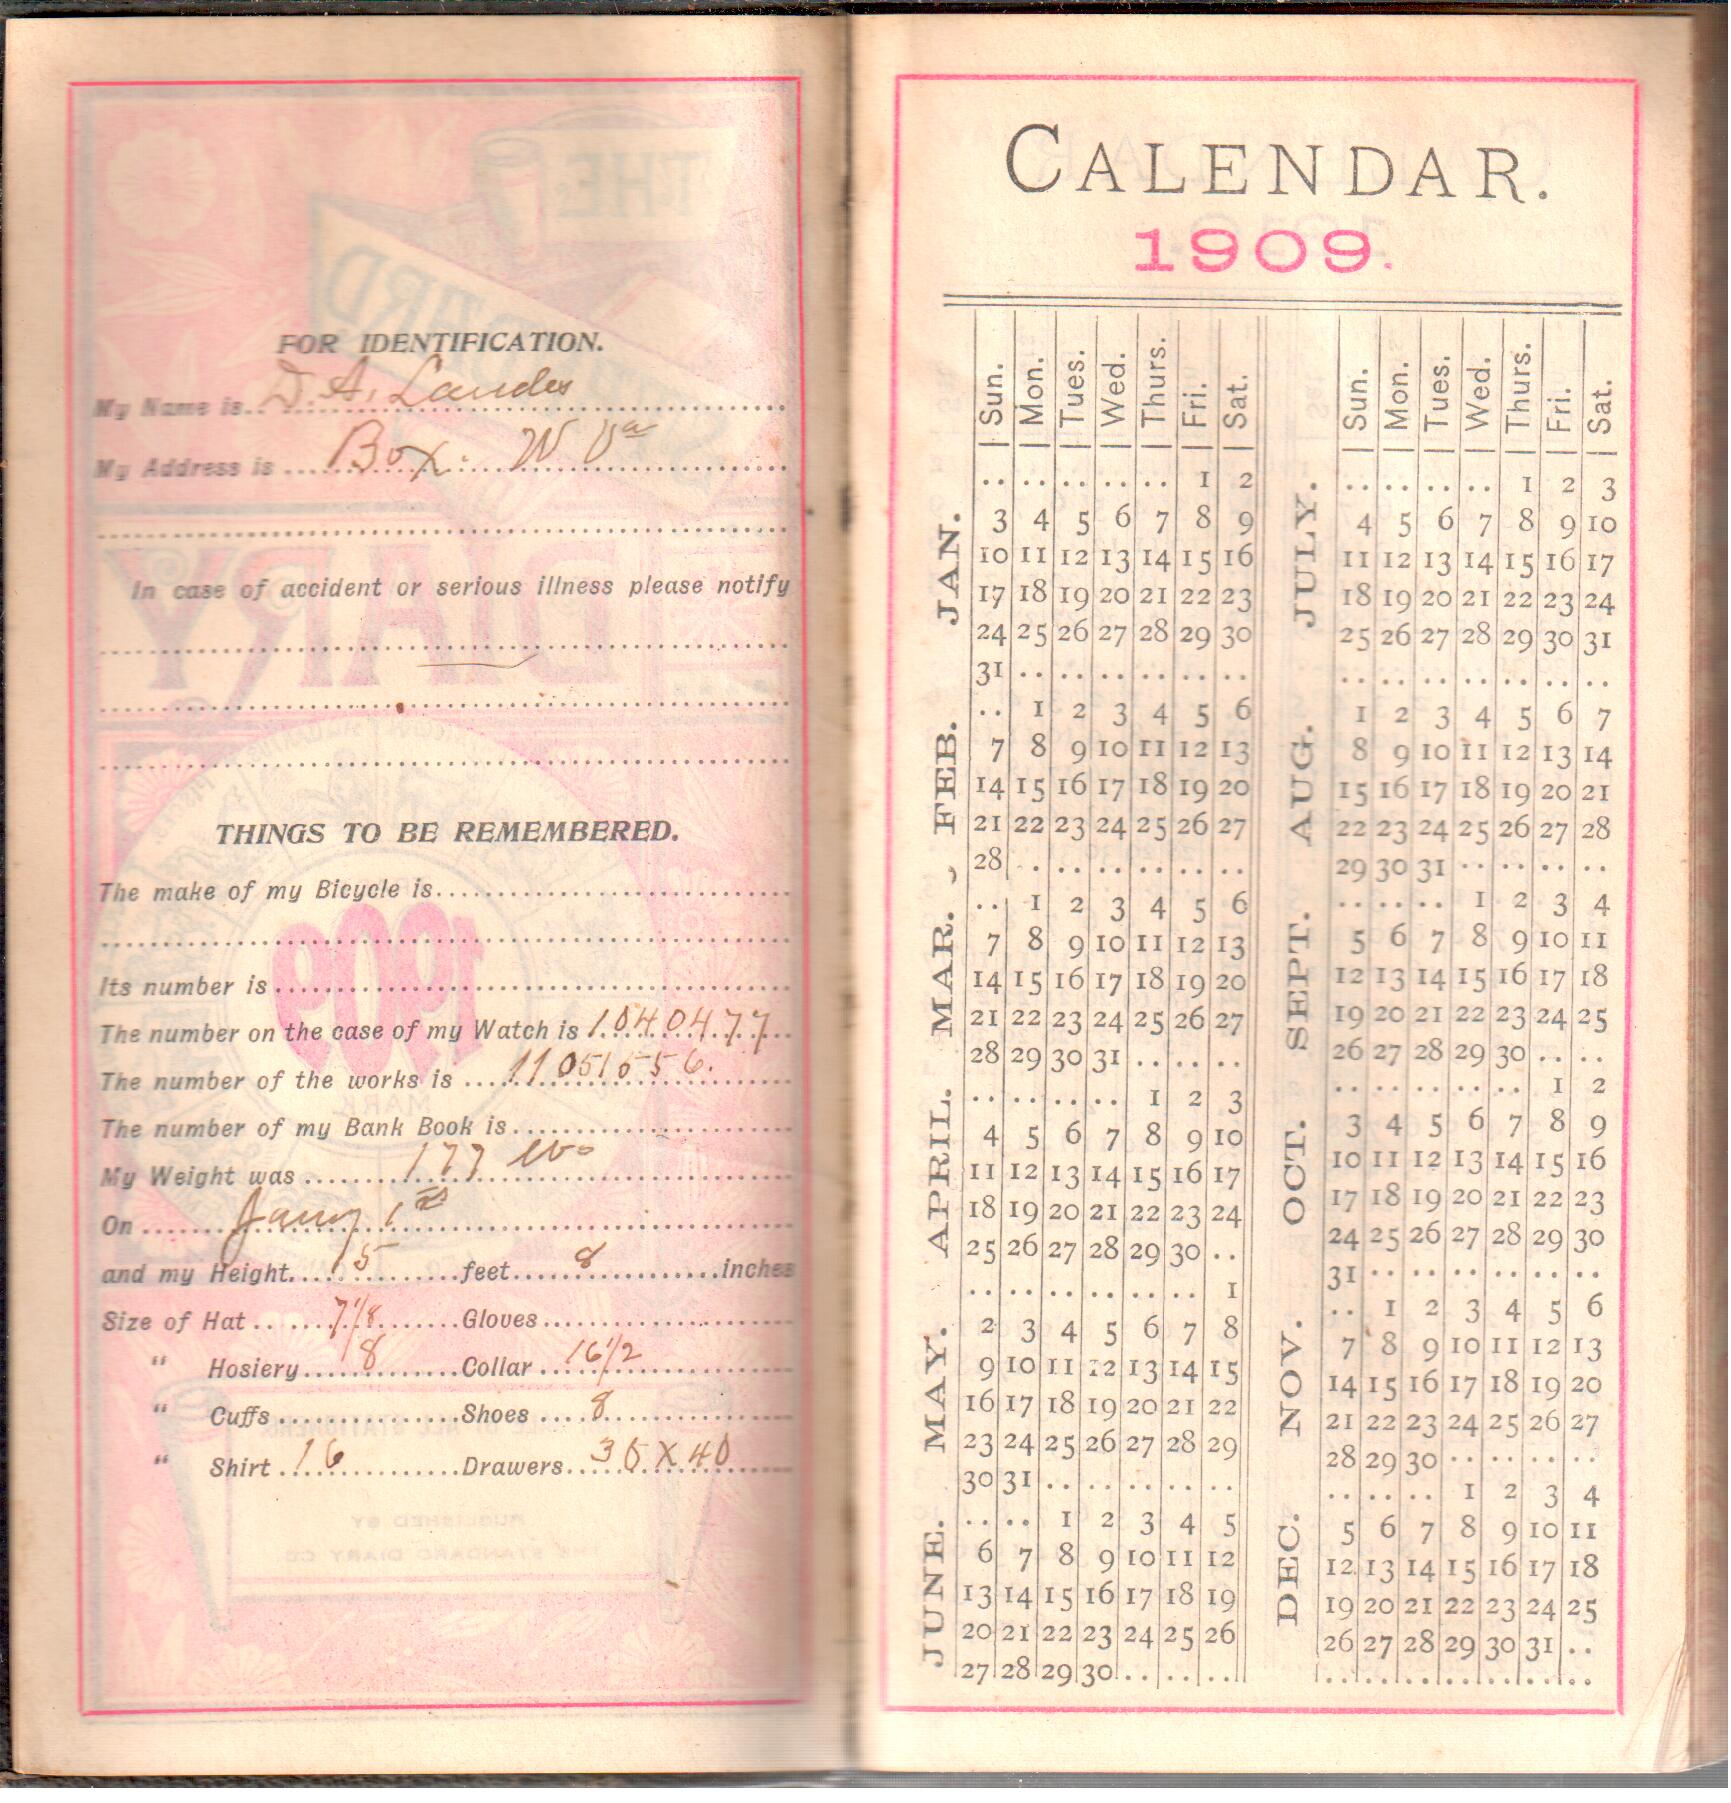 FOR IDENTIFICATION.
My Name is.. D. A. Landes
My Address is .... Box. W Va
In case of accident or serious illness please notify
THINGS TO BE REMEMBERED.
The make of my Bicycle is
Its number is
The number on the case of my Watch is
The number of the works is
The number of my Bank Book is
My Weight was 177 lbs
On Jany 1st
and my Height 5 feet 8 inches
Size of Hat 7 1/8 Gloves
" Hosiery 8 Collar 16 1/2
" Cuffs Shoes 8
" Shirt 16 Drawers 36 X 40
CALENDAR.
1909.
Sun. Mon. Tues. Wed. Thurs. Fri. Sat.
JAN.
.. .. .. .. .. 1 2
3 4 5 6 7 8 9
10 11 12 13 14 15 16
17 18 19 20 21 22 23
24 25 26 27 28 29 30
31 .. .. .. .. .. ..
FEB.
.. 1 2 3 4 5 6
7 8 9 10 11 12 13
14 15 16 17 18 19 20
21 22 23 24 25 26 27
28 .. .. .. .. .. ..
MAR.
.. 1 2 3 4 5 6
7 8 9 10 11 12 13
14 15 16 17 18 19 20
21 22 23 24 25 26 27
28 29 30 31 .. .. ..
APRIL.
.. .. .. .. 1 2 3
4 5 6 7 8 9 10
11 12 13 14 15 16 17
18 19 20 21 22 23 24
25 26 27 28 29 30 ..
MAY.
.. .. .. .. .. .. 1
2 3 4 5 6 7 8
9 10 11 12 13 14 15
16 17 18 19 20 21 22
23 24 25 26 27 28 29
30 31 .. .. .. .. ..
JUNE.
.. .. 1 2 3 4 5
6 7 8 9 10 11 12
13 14 15 16 17 18 19
20 21 22 23 24 25 26
27 28 29 30 .. .. ..
Sun. Mon. Tues. Wed. Thurs. Fri. Sat.
JULY.
.. .. .. .. 1 2 3
4 5 6 7 8 9 10
11 12 13 14 15 16 17
18 19 20 21 22 23 24
25 26 27 28 29 30 31
.. .. .. .. .. .. ..
AUG.
1 2 3 4 5 6 7
8 9 10 11 12 13 14
15 16 17 18 19 20 21
22 23 24 25 26 27 28
29 30 31 .. .. .. ..
SEPT.
.. .. .. 1 2 3 4
5 6 7 8 9 10 11
12 13 14 15 16 17 18
19 20 21 22 23 24 25
26 27 28 29 30 .. ..
OCT.
.. .. .. .. .. 1 2
3 4 5 6 7 8 9
10 11 12 13 14 15 16
17 18 19 20 21 22 23
24 25 26 27 28 29 30
31 .. .. .. .. .. ..
NOV.
.. 1 2 3 4 5 6
7 8 9 10 11 12 13
14 15 16 17 18 19 20
21 22 23 24 25 26 27
28 29 30 .. .. .. ..
DEC.
.. .. .. 1 2 3 4
5 6 7 8 9 10 11
12 13 14 15 16 17 18
19 20 21 22 23 24 25
26 27 28 29 30 31 ..
.. .. .. .. .. .. ..